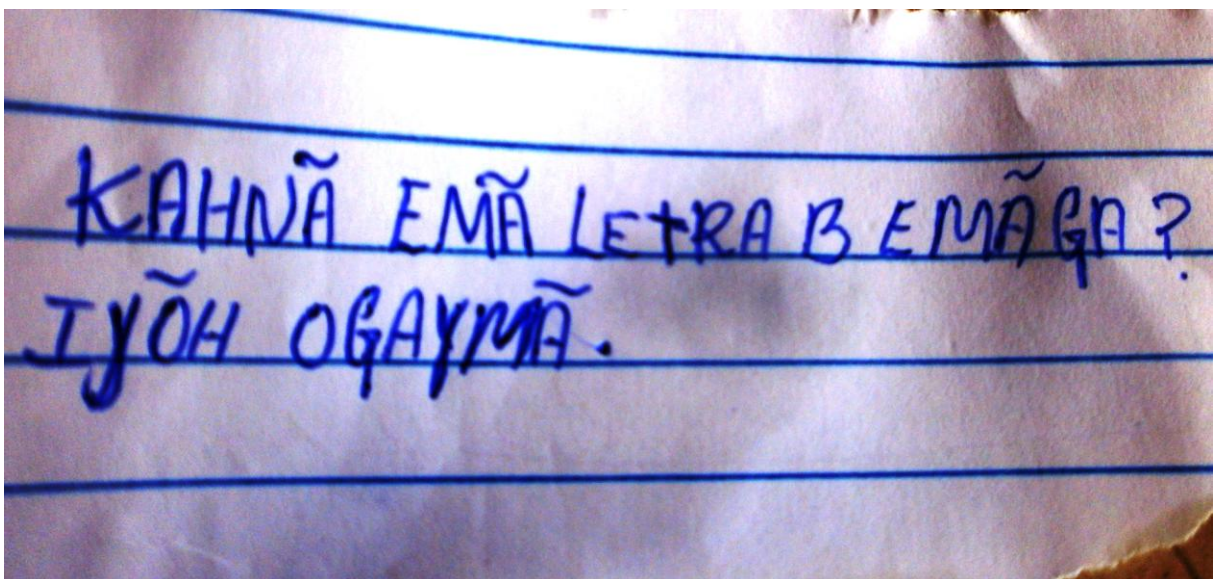 KAHNÃ EMÃ LETRA B EMÃGA?
IYÕH OGAYMÃ.